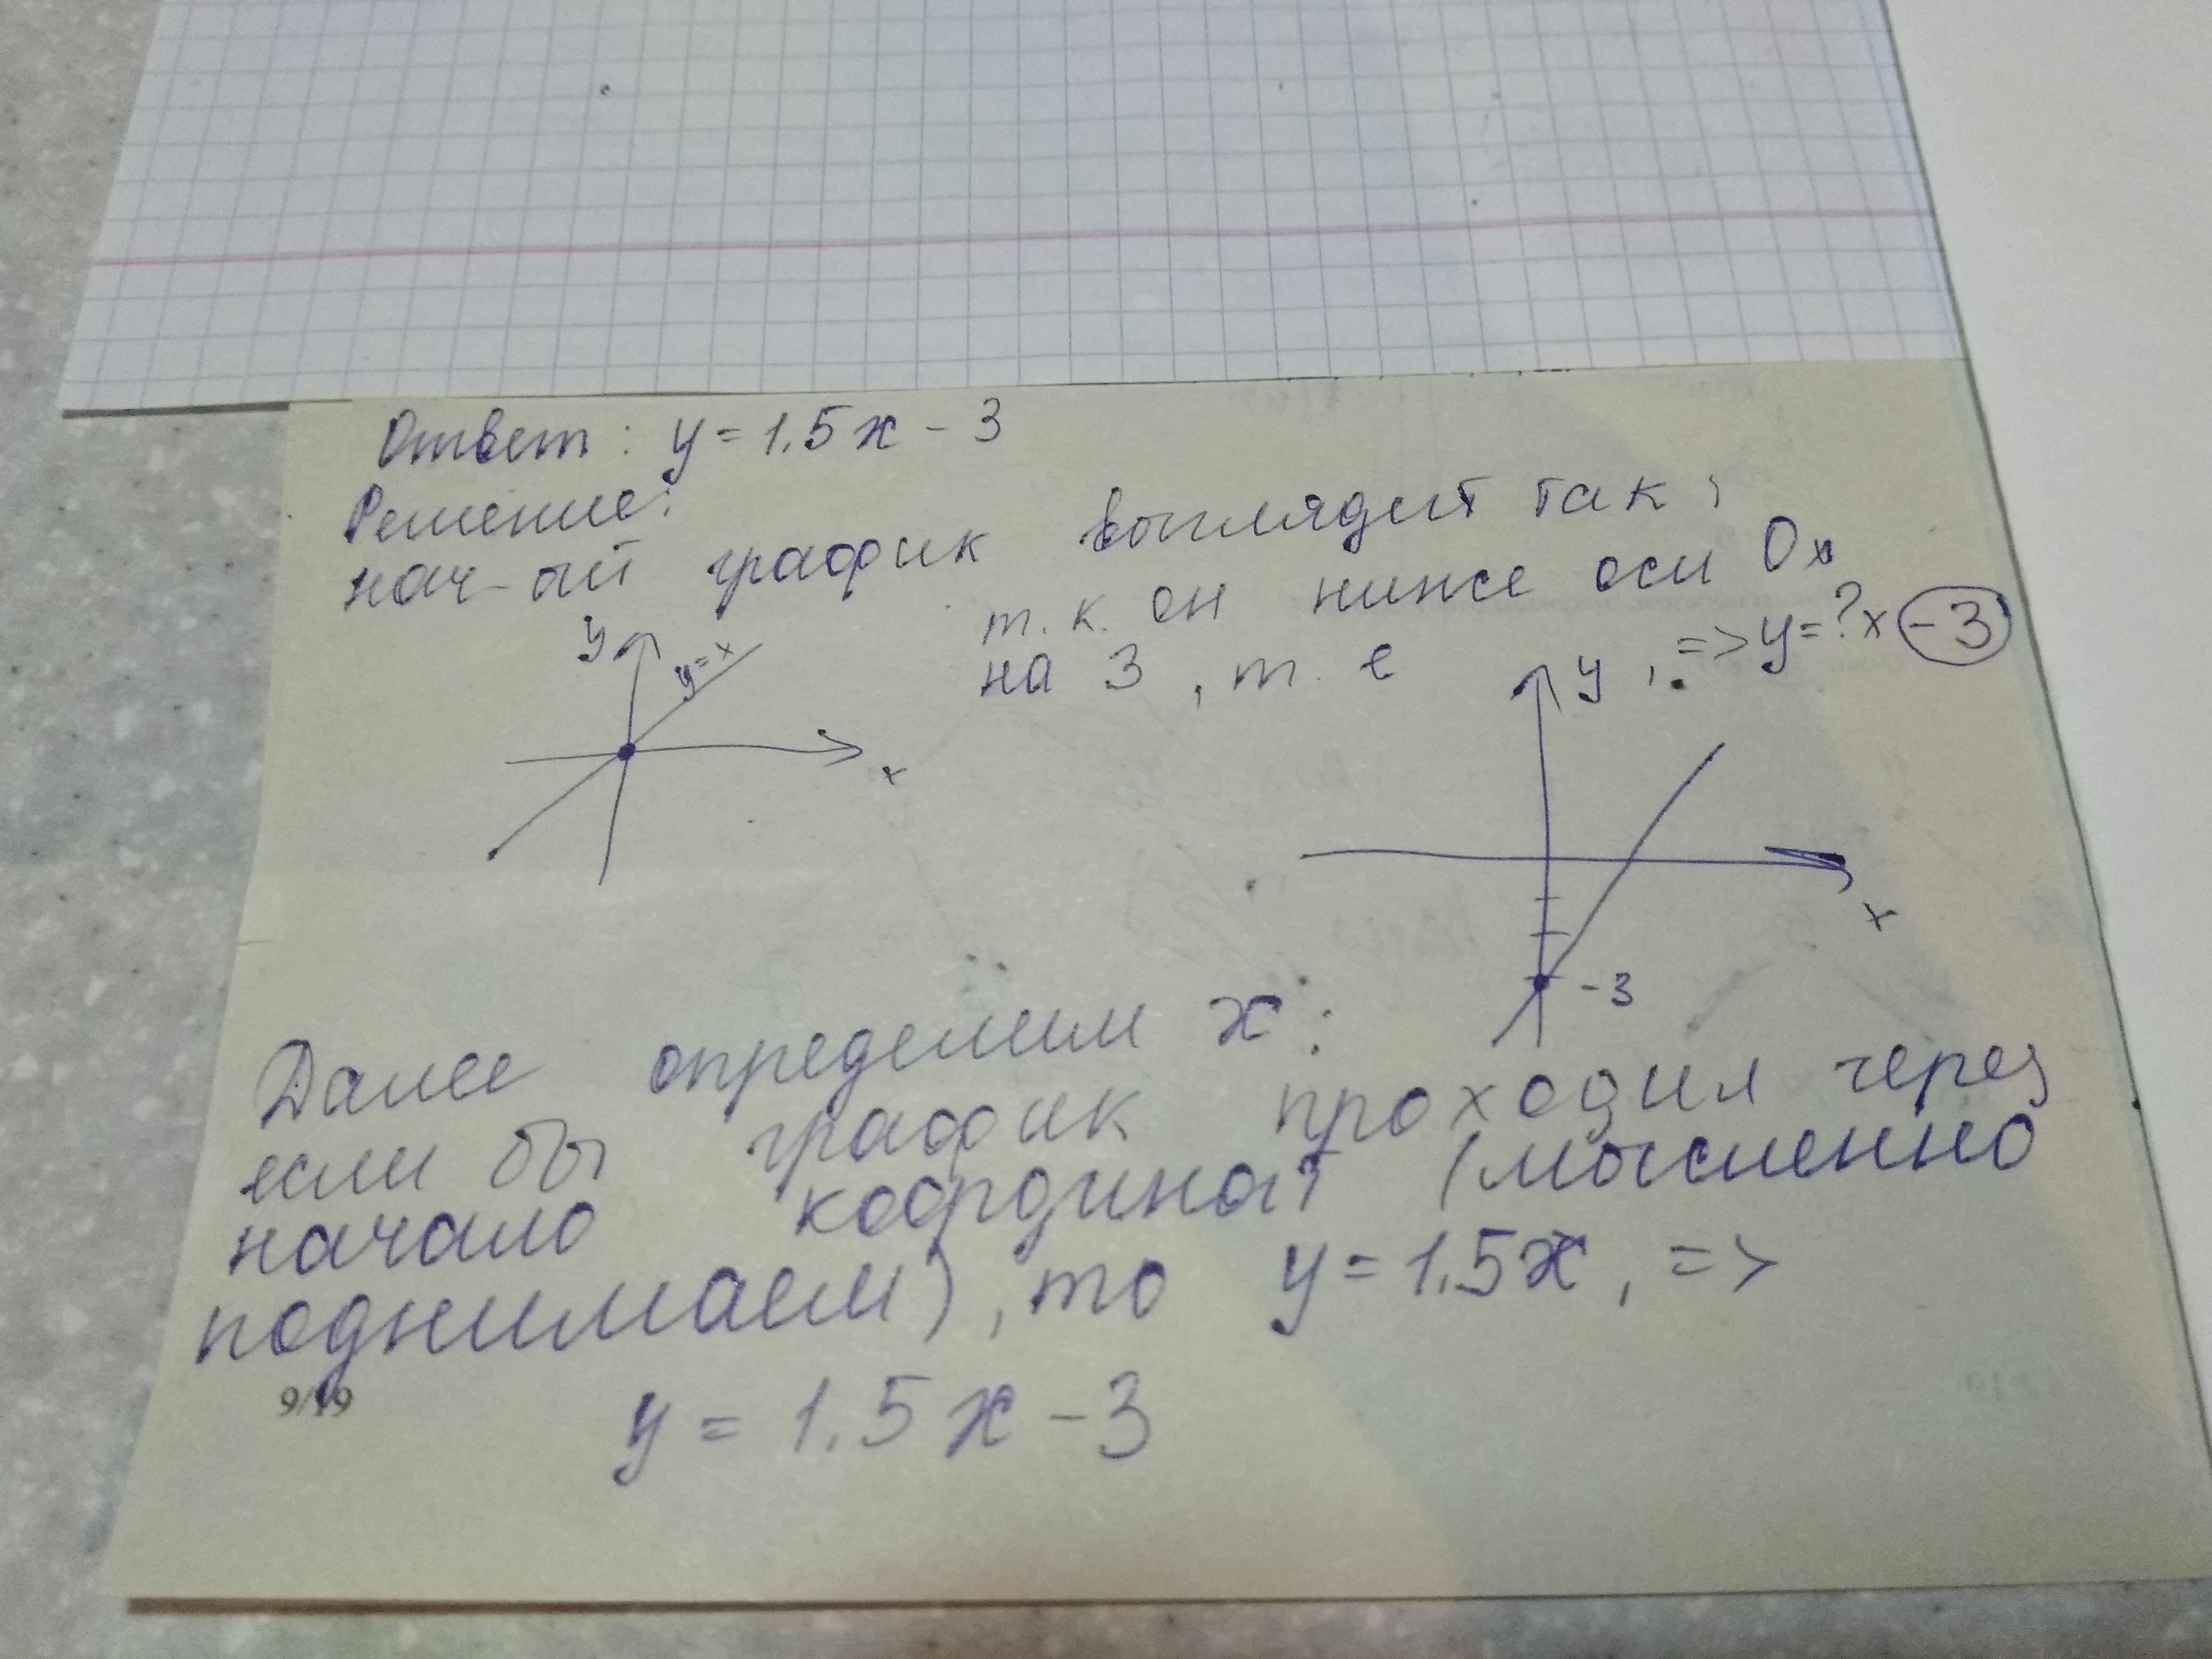 Ответ: y = 1.5x - 3
Решение:
нач-ый график выглядит так,
y
y=x
x
т.к. он ниже оси Ox
на 3, т. е
y , => y=?x -3
x
-3
Далее определим x:
если бы график проходил через
начало координат (мысленно
поднимаем), то y = 1.5x, =>
9/19
y = 1.5x - 3